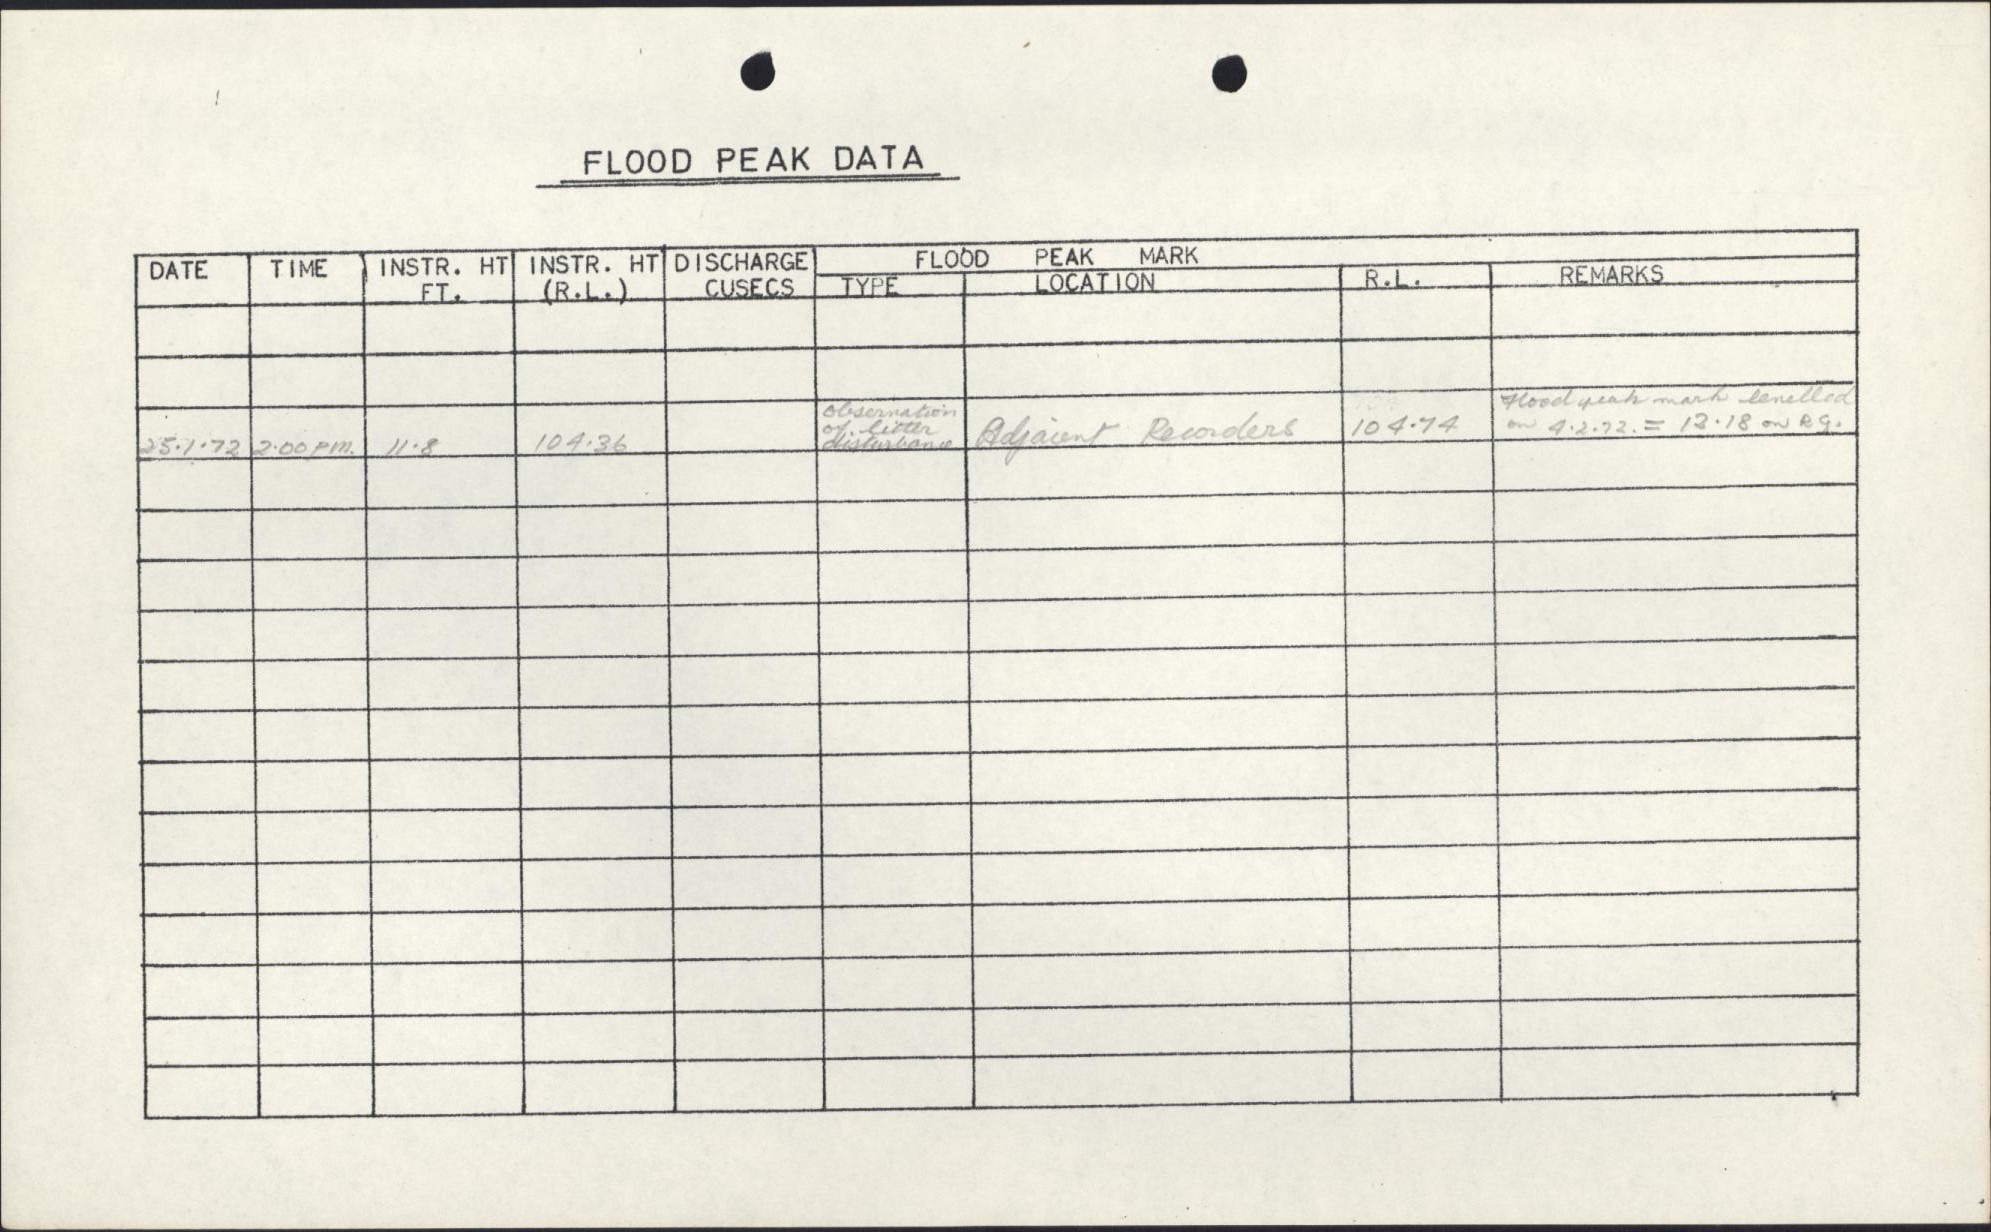 FLOOD PEAK DATA
DATE TIME INSTR. HT FT. INSTR. HT (R.L.) DISCHARGE CUSECS FLOOD PEAK MARK
TYPE LOCATION R.L. REMARKS
25.1.72 2.00 PM. 11.8 104.36 observation of litter disturbance Adjacent Recorders 104.74 Flood peak mark levelled
on 4.2.72. = 12.18 on R.G.